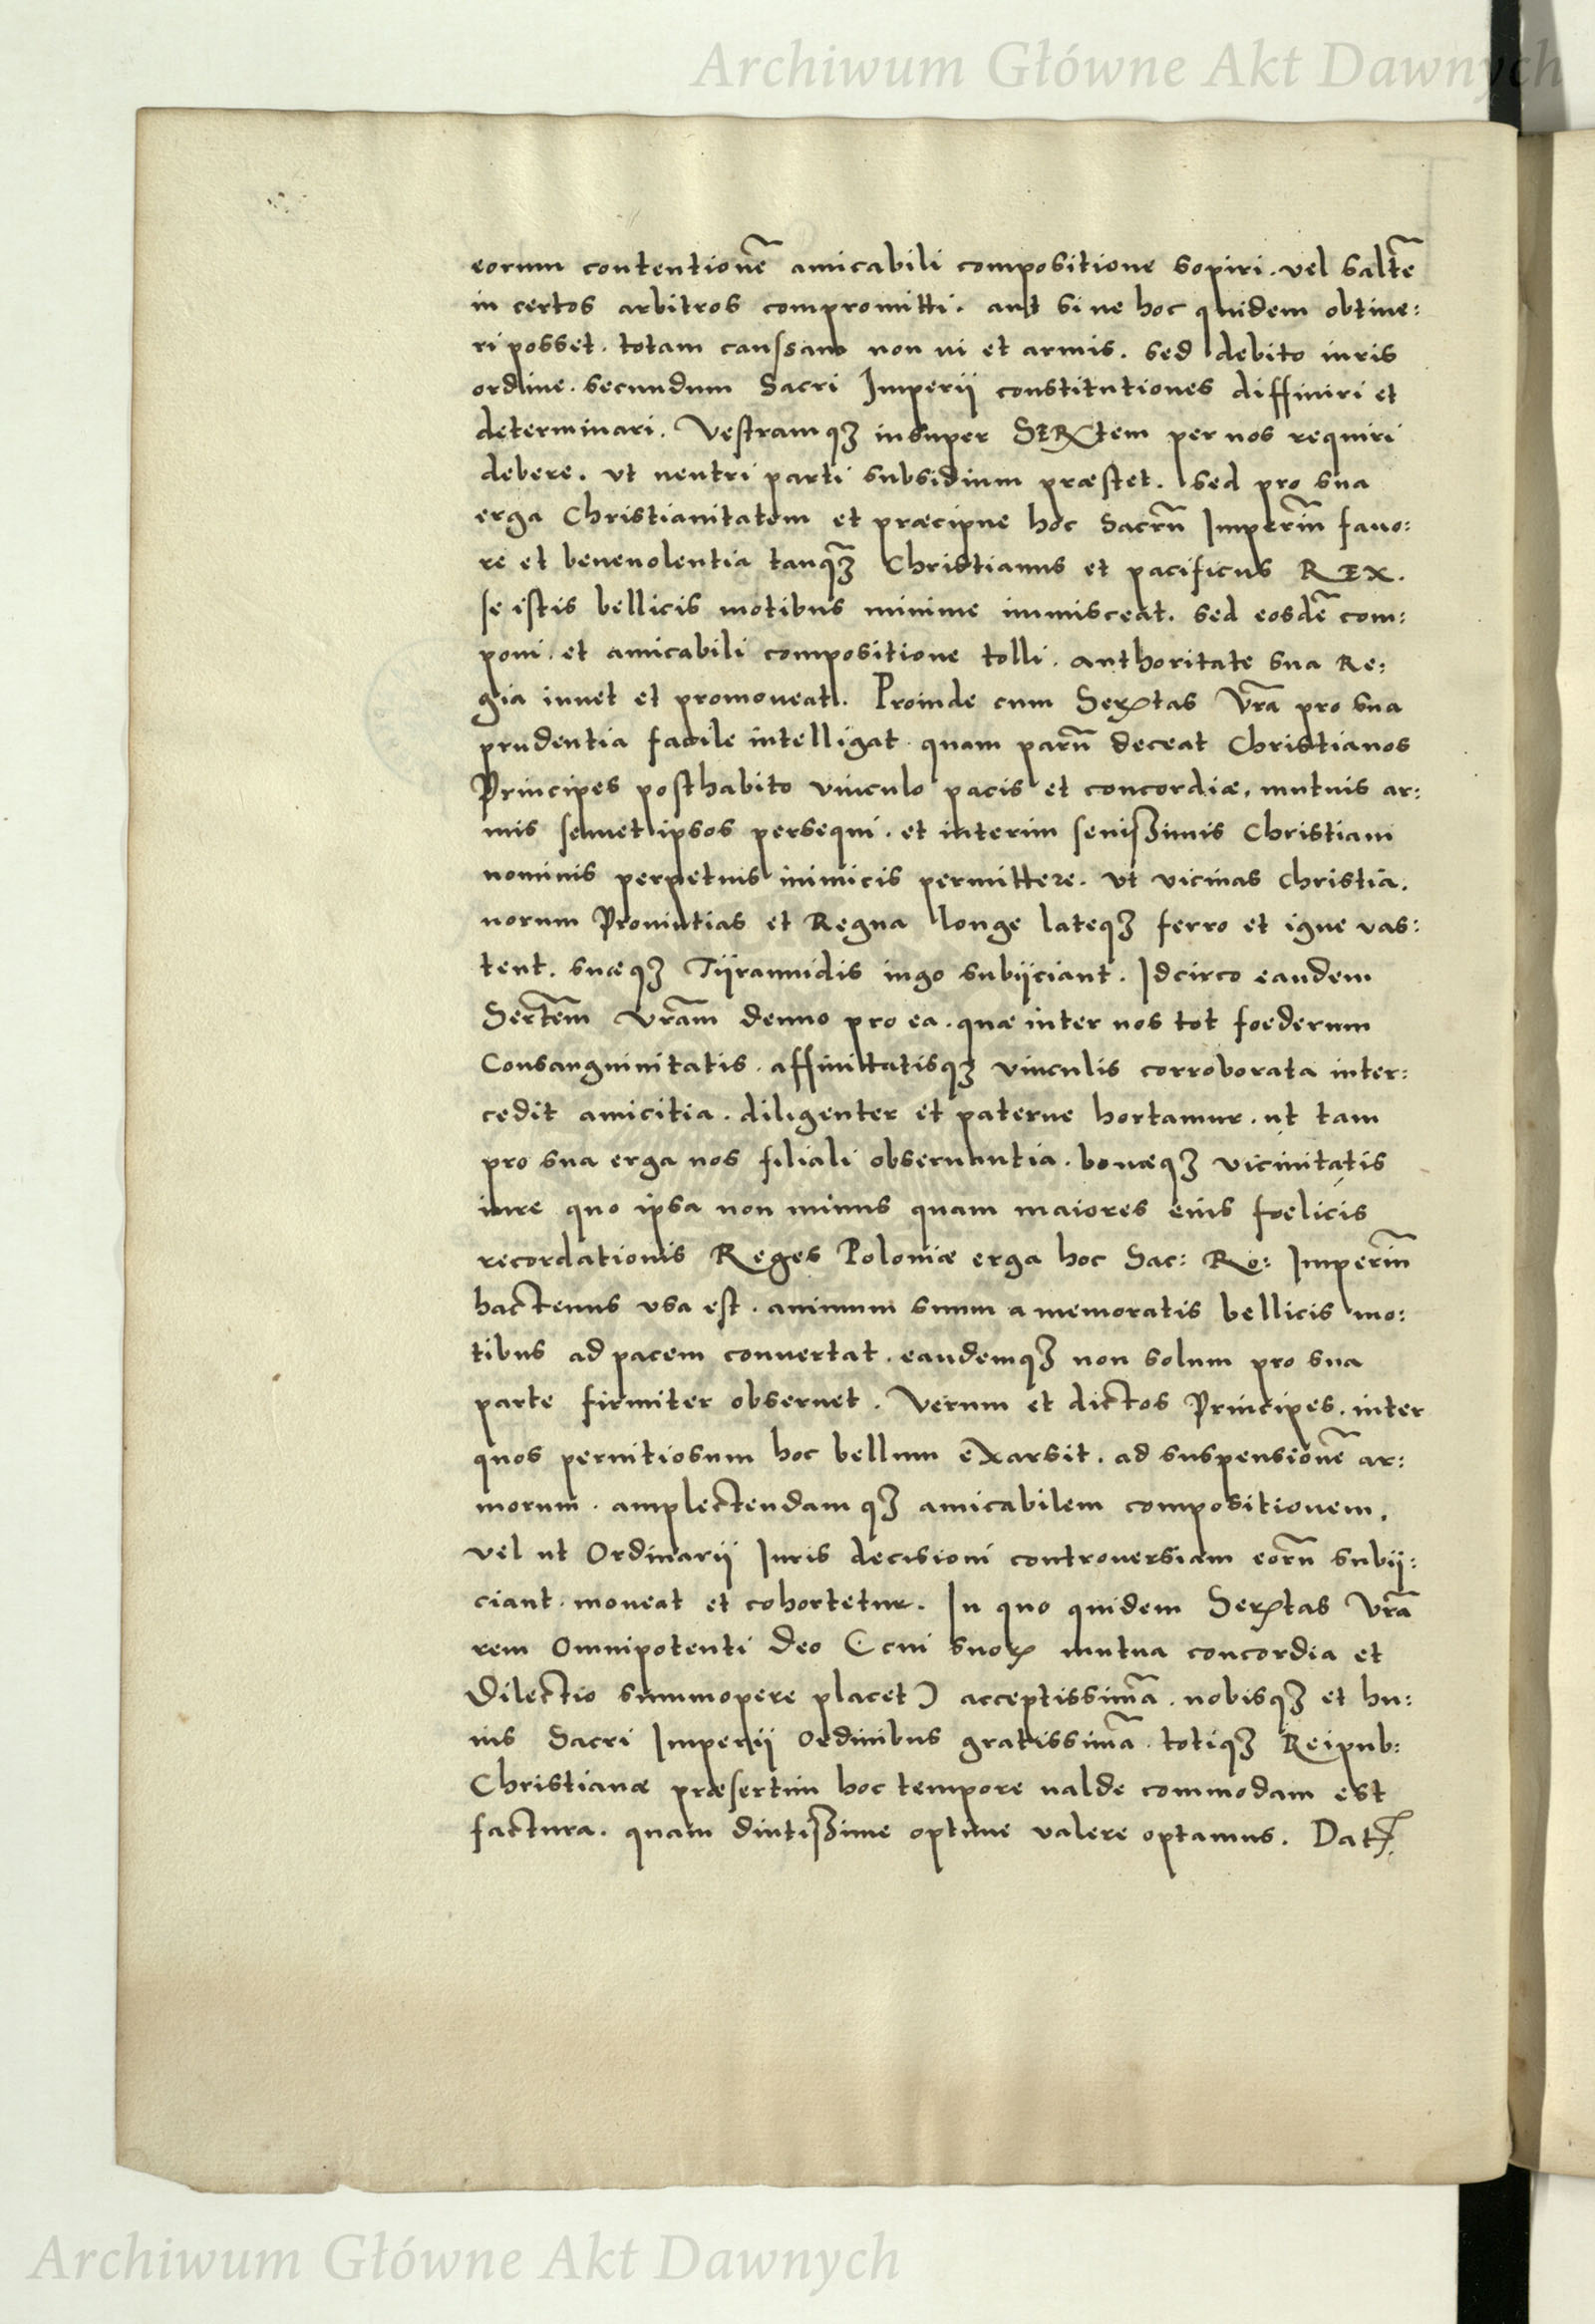 Archiwum Główne Akt Dawnych
eorum contentionē amicabili compositione sopiri. vel saltē
in certos arbitros compromitti. aut si ne hoc quidem obtine:
ri posset. totam caussam non ui et armis. sed debito iuris
ordine. secundum Sacri Imperii constitutiones diffiniri et
determinari. Vestramqꝫ insuper SERtem per nos requiri
debere. vt neutri parti subsidium præstet. sed pro sua
erga Christianitatem et præcipue hoc Sacrū Imperiū fauo:
re et beneuolentia tanqꝫ̄ Christianus et pacificus REX.
se istis bellicis motibus minime immisceat. sed eosdē com:
poni. et amicabili compositione tolli. authoritate sua Re:
gia iuuet et promoueat. Proinde cum Serꝛtas Vrā pro sua
prudentia facile intelligat. quam parū deceat Christianos
Principes posthabito vinculo pacis et concordiæ, mutuis ar:
mis semet ipsos persequi. et interim seuißimis Christiani
nominis perpetuis inimicis permittere. vt vicinas Christia.
norum Prouintias et Regna longe lateqꝫ ferro et igne vas:
tent. suæqꝫ Tijrannidis iugo subijciant. Idcirco eandem
Sertēm Vrām denuo pro ea. quæ inter nos tot foederum
Consanguinitatis. affinitatisqꝫ vinculis corroborata inter:
cedit amicitia. diligenter et paterne hortamur. ut tam
pro sua erga nos filiali obseruantia. bonæqꝫ vicinitatis
iure quo ipsa non minus quam maiores eius foelicis
recordationis Reges Poloniæ erga hoc Sac: Ro: Imperiū
hactenus vsa est. animum suum a memoratis bellicis mo:
tibus ad pacem conuertat. eandemqꝫ non solum pro sua
parte firmiter obseruet. Verum et dictos Principes. inter
quos pernitiosum hoc bellum exarsit. ad suspensionē ar:
morum. amplectendamqꝫ amicabilem compositionem.
vel ut Ordinarii Iuris decisioni controuersiam eorū subij:
ciant. moueat et cohortetur. In quo quidem Serꝛtas Vrā
rem Omnipotenti Deo (cui suoꝝ mutua concordia et
Dilectio summopere placet) acceptissimā. nobisqꝫ et hu:
ius Sacri Imperii Ordinibus gratissimā. totiqꝫ Reipub:
Christianæ præsertim hoc tempore ualde commodam est
factura. quam diutißime optime valere optamus. Dat.
Archiwum Główne Akt Dawnych